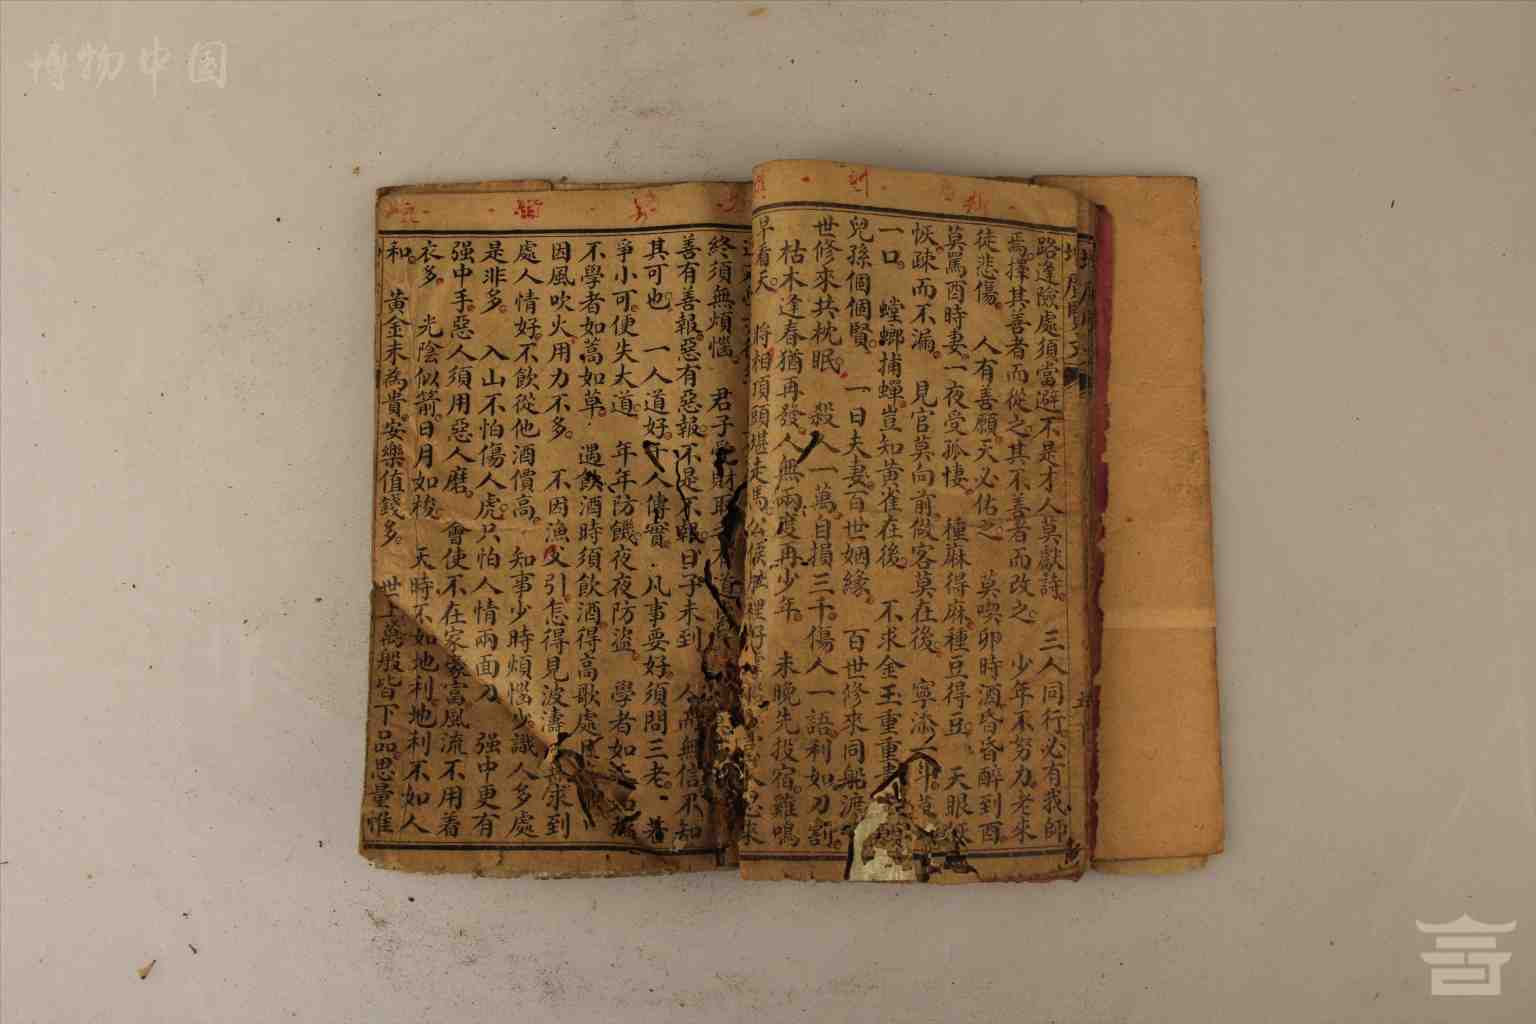 博物中国
路逢險處須當避不是才人莫獻詩 三人同行必有我師
焉擇其善者而從之其不善者而改之 少年不努力老來
徒悲傷 人有善願天必佑之 莫喫卯時酒昏昏醉到酉
莫罵酉時妻一夜受孤悽 種麻得麻種豆得豆 天眼恢
恢疎而不漏 見官莫向前做客莫在後 寧添一斗莫
一口 螳螂捕蟬豈知黃雀在後 不求金玉重重
兒孫個個賢 一日夫妻百世姻緣 百世修來同船渡
世修來共枕眠 殺人一萬自損三千傷人一語利如刀割
枯木逢春猶再發人無兩度再少年 未晚先投宿雞鳴
早看天 將相頂頭堪走馬公侯肚裡好 來
終須無煩惱 君子愛財取
善有善報惡有惡報不是不報日子未到 人而無信不知
其可也 一人道好千人傳實 凡事要好須問三老 若
爭小可便失大道 年年防饑夜夜防盜 學者如
不學者如蒿如草 遇飲酒時須飲酒得高歌處
因風吹火用力不多 不因漁父引怎得見波濤 求到
處人情好不飲從他酒價高 知事少時煩惱少識人多處
是非多 入山不怕傷人虎只怕人情兩面刀 强中更有
强中手惡人須用惡人磨 會使不在家豪富風流不用着
衣多 光陰似箭日月如梭 天時不如地利地利不如人
和 黃金未為貴安樂值錢多 世上萬般皆下品思量惟